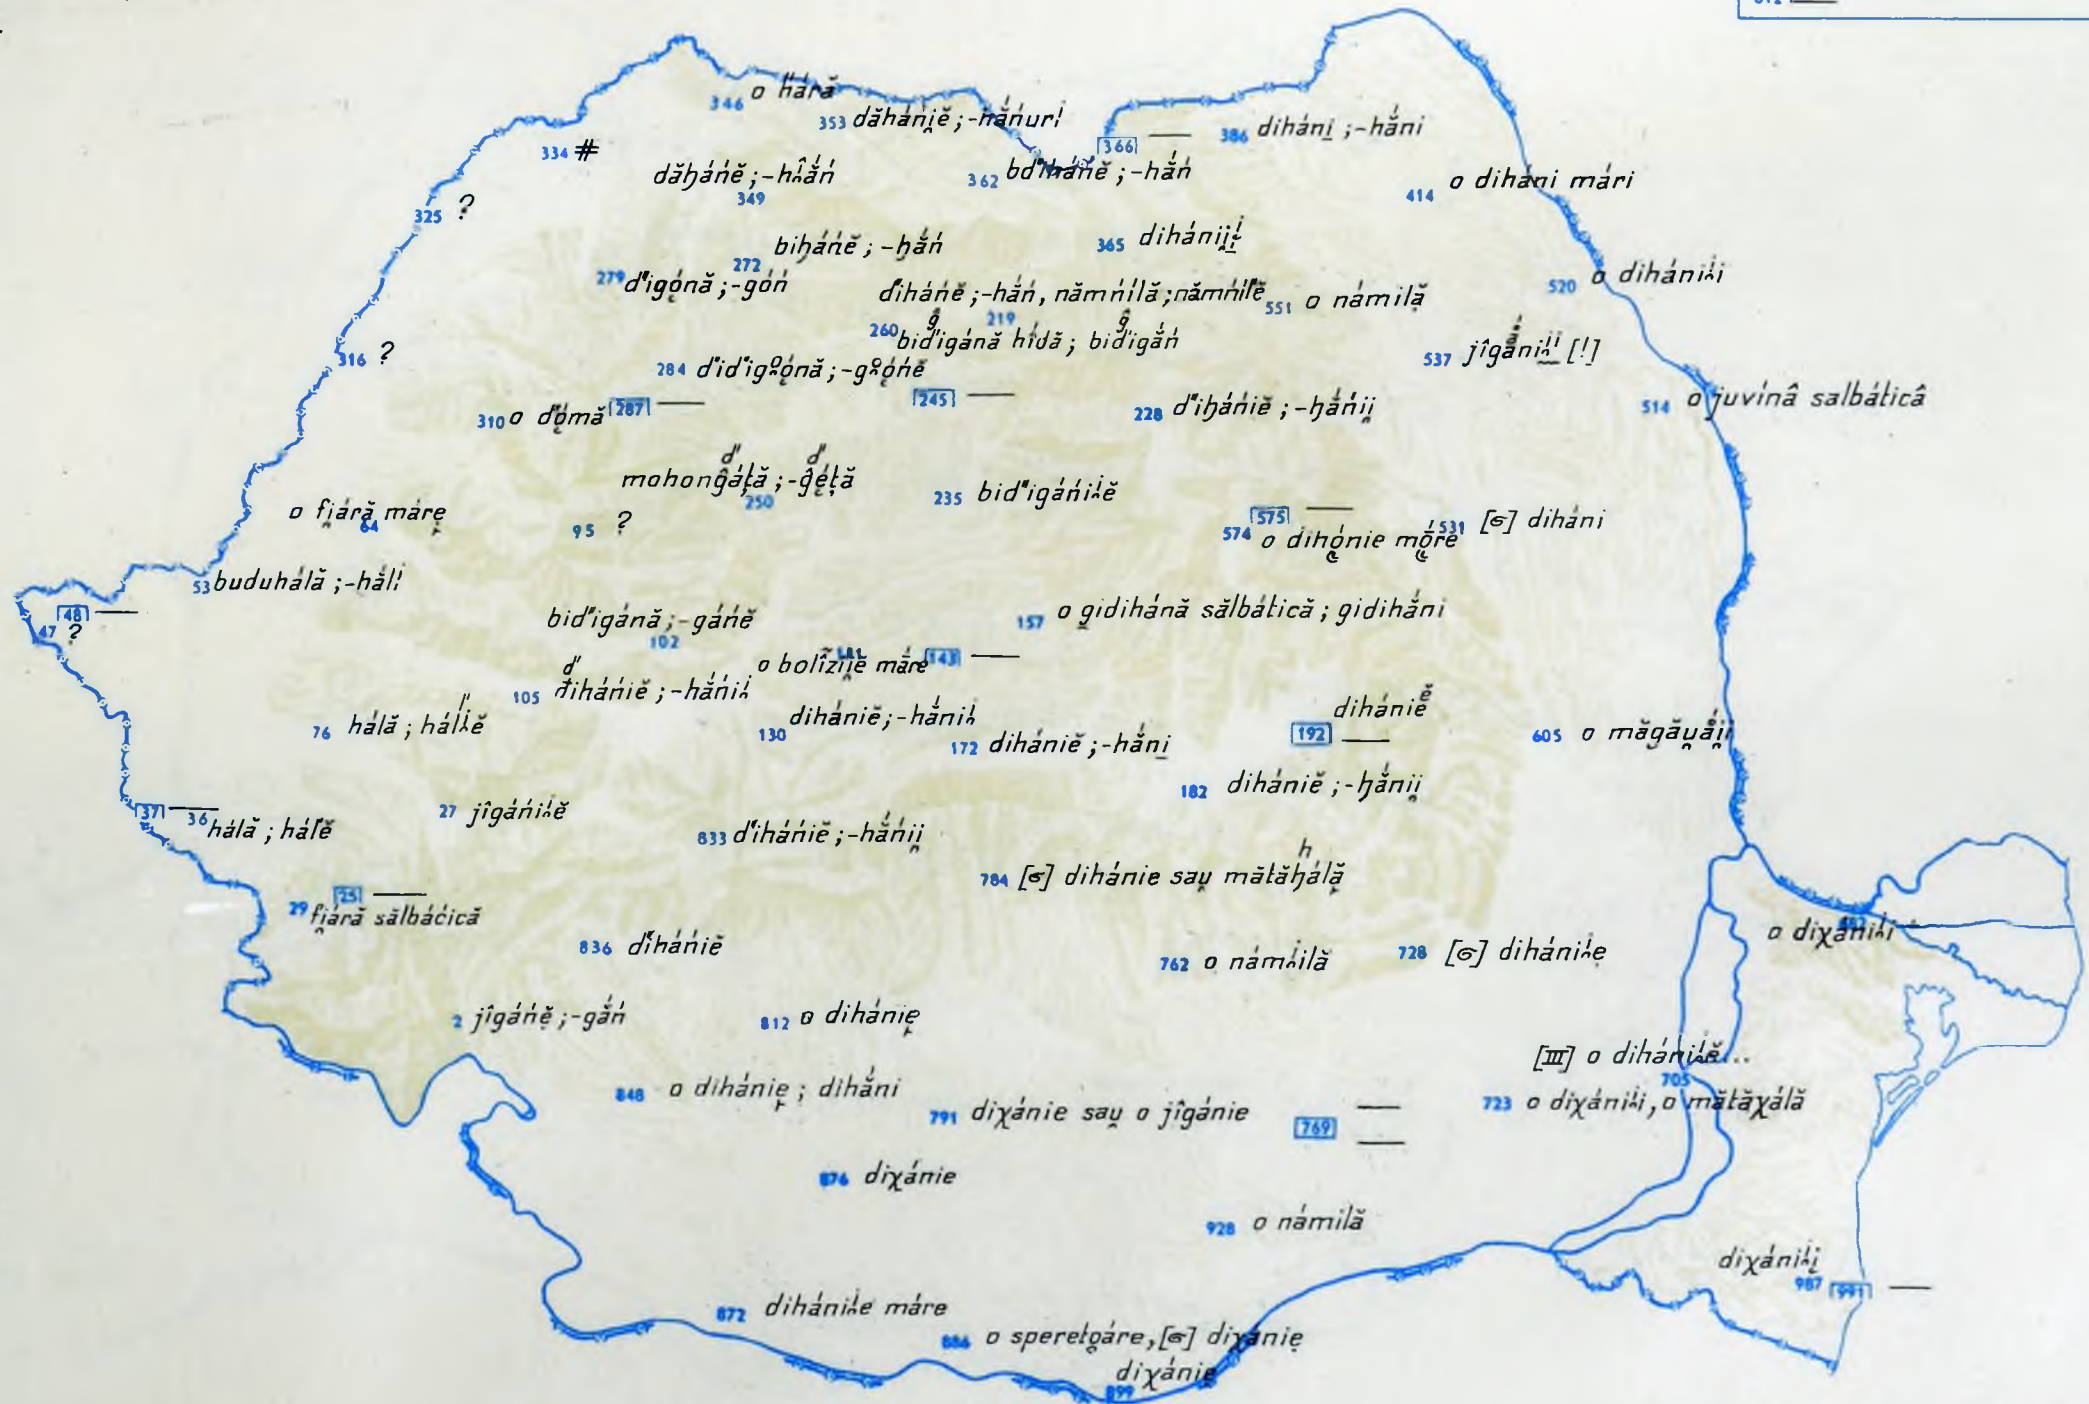 346 o h́áră
353 dăhánĭe̯ ; -hắnurĭ
366 —
386 diháni̱ ; -hắni
334 #
dăh̬áńĕ ; -hắń
349
362 bd'iháńĕ ; -hắń
414 o diháni mári
325 ?
272 bih̬áńĕ ; -h̬ắń
365 dihánii̯
279 d'igǫ́nă ; -góń
diháńĕ ; -hắń, nămńílă ; nămńíľĕ
219
551 o námilă
520 o diháni
316 ?
260 bid'igánă hídă ; bid'igắń
537 jîgắni [!]
284 d'id'igǫ́nă ; -gǫ́ńĕ
287 —
245 —
228 d'ih̬ánĭĕ ; -h̬ắńii̯
514 o juvínâ salbátică
310 o d'ǫ́mă
mohonĝáţă ; -ĝéţă
250
235 bid'igáńiĕ
o fi̯áră máre
64
95 ?
575 —
574 o dihǫ́nie mǫ́re
531 [ɕ] diháni
53 buduhálă ; -hắlĭ
48 —
47 ?
bid'igánă ; -gáńĕ
102
157 o gidihánă sălbátică ; gidihắni
o bolî́zii̯ĕ máre
143 —
105 d'iháńiĕ ; -hắńi
76 hálă ; hálĕ
130 dihániĕ ; -hắni
172 dihániĕ ; -hắni̱
dihániĕ
192 —
605 o măgău̯ắii̯
182 dihániĕ ; -h̬ắnii̯
37 —
36 hálă ; háľĕ
27 jîgáńiĕ
833 d'iháńiĕ ; -hắńii̯
784 [ɕ] dihánie sau̯ mătăh̬álă
25 —
29 fi̯áră sălbáćică
836 d'iháńiĕ
762 o námilă
728 [ɕ] dihánie
o diχáni
2 jîgáńĕ ; -gắń
812 o dihánie
[III] o dihániĕ...
705
848 o dihánie ; dihắni
791 diχánie sau̯ o jîgánie
769 —
—
723 o diχánii, o mătăχálă
876 diχánie
928 o námilă
diχánii
987
991 —
872 dihánie máre
886 o speretǫáre, [ɕ] diχánie
diχánie
899